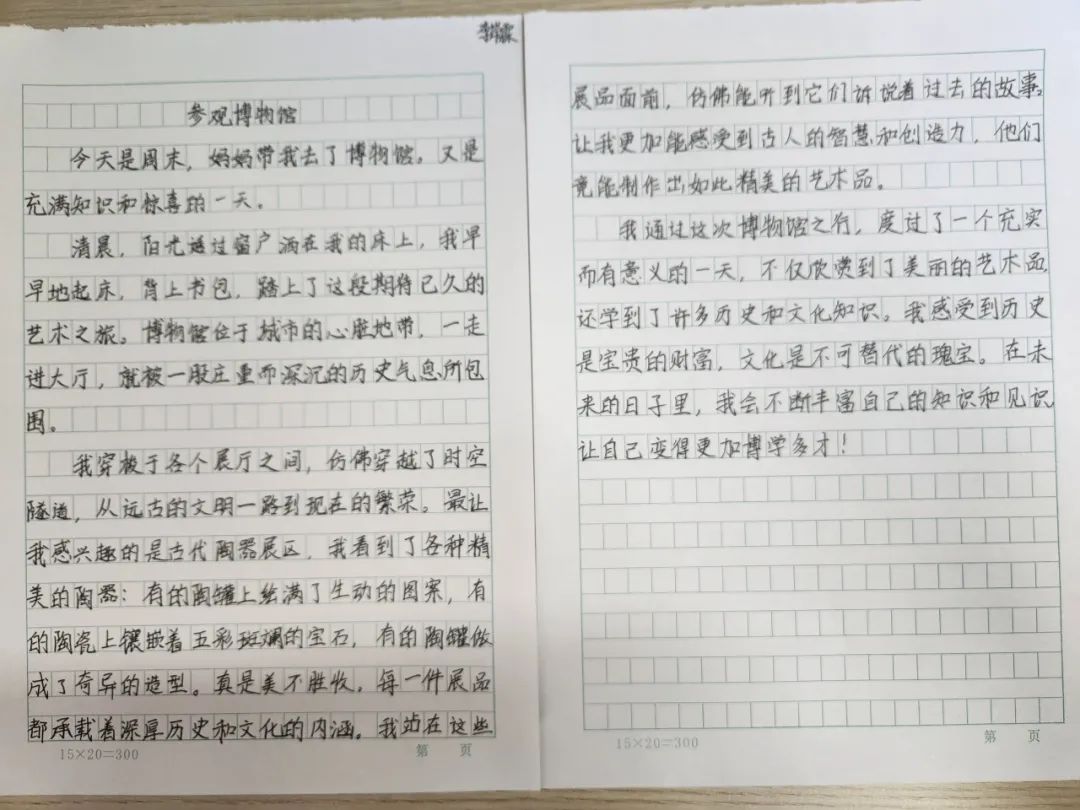 参观博物馆
今天是周末，妈妈带我去了博物馆。又是
充满知识和惊喜的一天。
清晨，阳光透过窗户洒在我的床上，我早
早地起床，背上书包，踏上了这段期待已久的
艺术之旅。博物馆位于城市的心脏地带，一走
进大厅，就被一股庄重而深沉的历史气息所包
围。
我穿梭于各个展厅之间，仿佛穿越了时空
隧道，从远古的文明一路到现在的繁荣。最让
我感兴趣的是古代陶器展区，我看到了各种精
美的陶器：有的陶罐上绘满了生动的图案，有
的陶瓷上镶嵌着五彩斑斓的宝石，有的陶罐做
成了奇异的造型。真是美不胜收，每一件展品
都承载着深厚历史和文化的内涵。我站在这些
15×20=300
第 页
展品面前，仿佛能听到它们诉说着过去的故事。
让我更加能感受到古人的智慧和创造力，他们
竟能制作出如此精美的艺术品。
我通过这次博物馆之行，度过了一个充实
而有意义的一天，不仅欣赏到了美丽的艺术品，
还学到了许多历史和文化知识。我感受到历史
是宝贵的财富，文化是不可替代的瑰宝。在未
来的日子里，我会不断丰富自己的知识和见识
让自己变得更加博学多才！
15×20=300
第 页